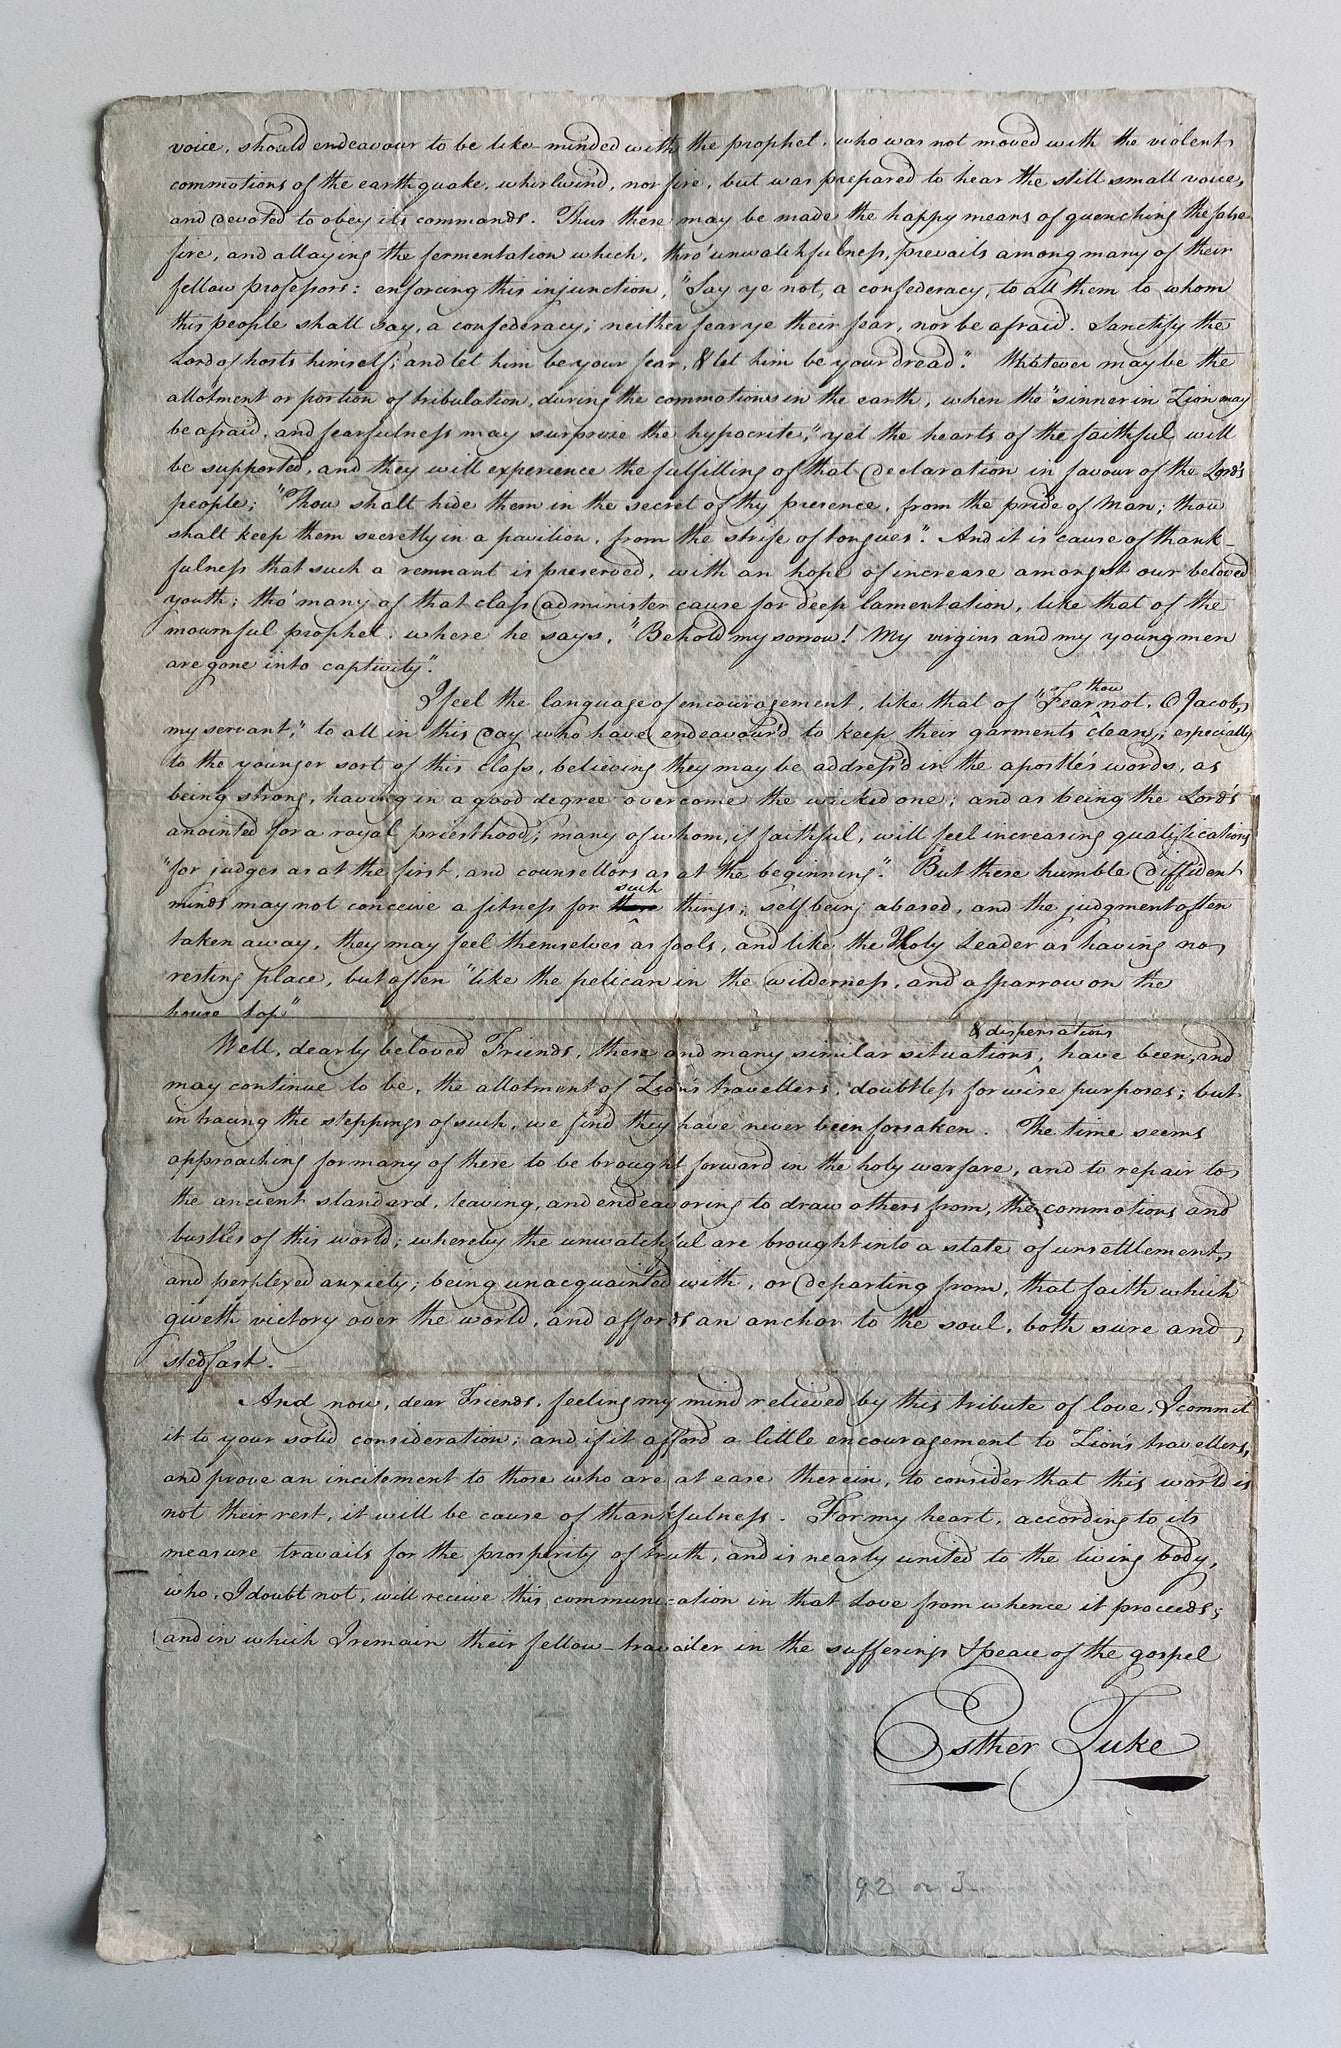 voice, should endeavour to be like-minded with the prophet, who was not moved with the violent
commotions of the earthquake, whirlwind, nor fire, but was prepared to hear the still small voice,
and devoted to obey its commands. Thus these may be made the happy means of quenching the false
fire, and allaying the fermentation which, thro' unwatchfulness, prevails among many of their
fellow professors: enforcing this injunction, "Say ye not, a confederacy, to all them to whom
this people shall say, a confederacy; neither fear ye their fear, nor be afraid. Sanctify the
Lord of hosts himself; and let him be your fear, & let him be your dread." Whatever may be the
allotment or portion of tribulation, during the commotions in the earth, when the "sinner in Zion may
be afraid, and fearfulness may surprize the hypocrite," yet the hearts of the faithful will
be supported, and they will experience the fulfilling of that declaration in favour of the Lord's
people; "Thou shalt hide them in the secret of thy presence, from the pride of Man; thou
shalt keep them secretly in a pavilion, from the strife of tongues". And it is cause of thank-
fulness that such a remnant is preserved, with an hope of increase amongst our beloved
youth; tho' many of that class administer cause for deep lamentation, like that of the
mournful prophet; where he says, "Behold my sorrow! My virgins and my young men
are gone into captivity".
I feel the language of encouragement, like that of "Fear thou not, O Jacob,
my servant," to all in this day who have endeavour'd to keep their garments clean; especially
to the younger sort of this class, believing they may be address'd in the apostle's words, as
being strong, having in a good degree overcome the wicked one; and as being the Lord's
anointed for a royal priesthood; many of whom, if faithful, will feel increasing qualifications
"for judges as at the first, and counsellors as at the beginning". But these humble diffident
minds may not conceive a fitness for such things; self being abased, and the judgment often
taken away, they may feel themselves as fools, and like the Holy Leader as having no
resting place, but often "like the pelican in the wilderness, and a sparrow on the
house top"
Well, dearly beloved Friends, these and many similar situations, & dispensations have been, and
may continue to be, the allotment of Zion's travellers, doubtless for wise purposes; but
in tracing the steppings of such, we find they have never been forsaken. The time seems
approaching for many of these to be brought forward in the holy warfare, and to repair to
the ancient standard, leaving, and endeavoring to draw others from, the commotions and
bustles of this world; whereby the unwatchful are brought into a state of unsettlement,
and perplexed anxiety; being unacquainted with, or departing from, that faith which
giveth victory over the world, and affords an anchor to the soul, both sure and
stedfast.
And now, dear Friends, feeling my mind relieved by this tribute of love, I commit
it to your solid consideration; and if it afford a little encouragement to Zion's travellers,
and prove an incitement to those who are at ease therein, to consider that this world is
not their rest, it will be cause of thankfulness. For my heart, according to its
measure travails for the prosperity of truth, and is nearly united to the living body,
who, I doubt not, will receive this communication in that Love from whence it proceeds;
and in which I remain their fellow-travailer in the sufferings & peace of the gospel
Esther Tuke
92 or 3